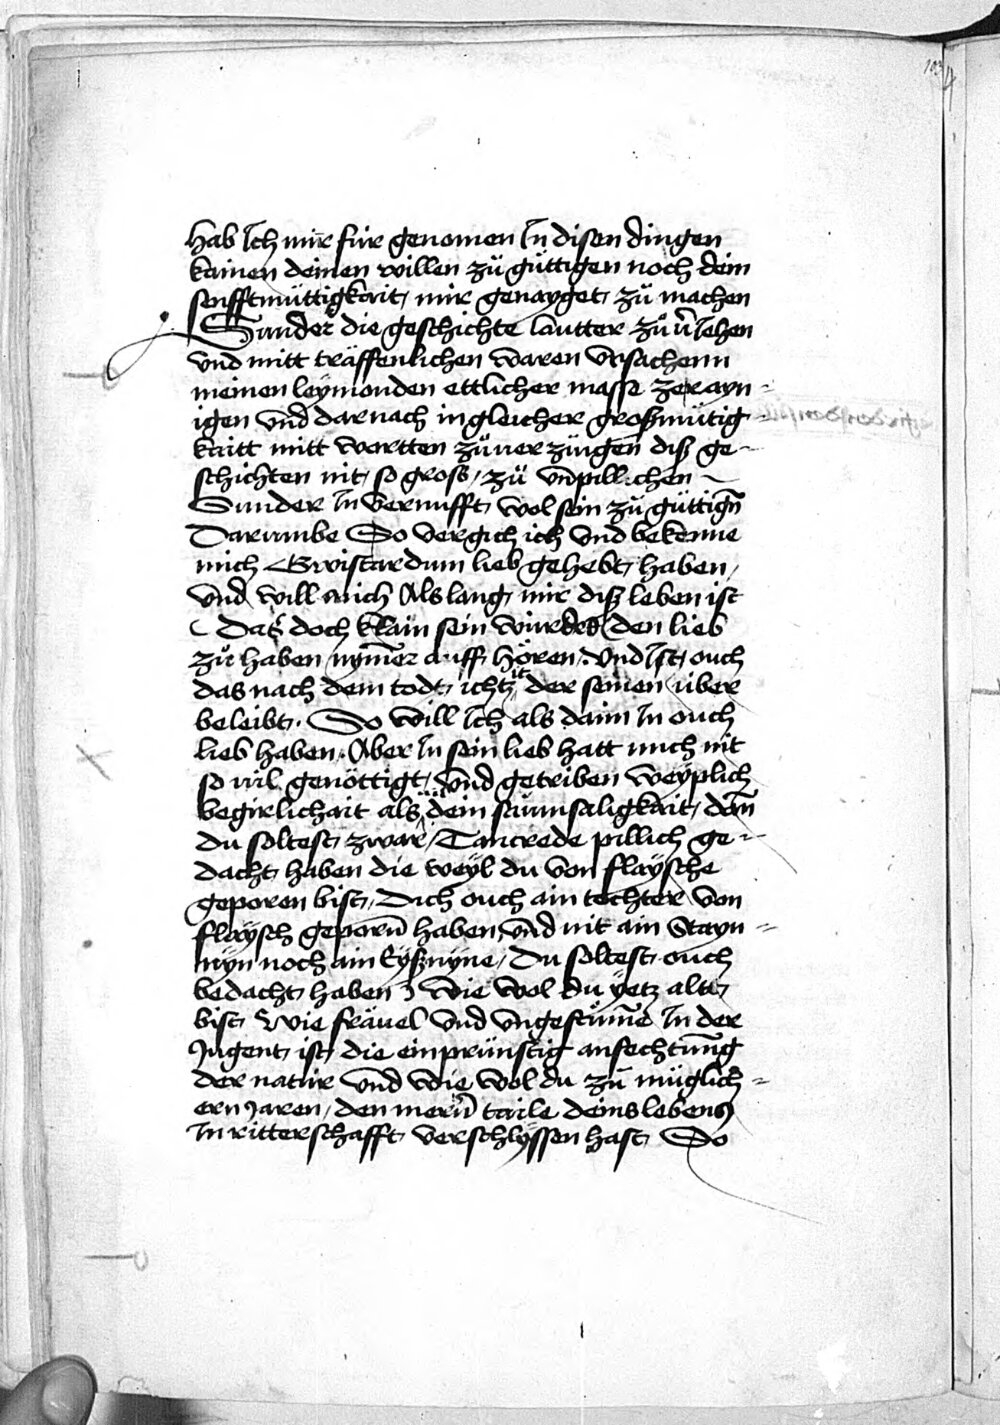 103
hab Ich mir für genomen In disen dingen
kainen deinen willen zů güttigen noch dein
senfftmüttigkait mir genayget zů machen
Sunder die geschichte lautter zů v̄lehen
vnd mitt träffenlichen waren vrsachenn
meinen leÿmonden ettlicher masse zerayn
igen vnd darnach in gleicher großmütig
kaitt mitt wortten zůuerzüugen diß ge
schichten nit so groß zů vnpillichen
Sunder In vernufft wol sein zů güttign̄
Darumbe So vergich ich vnd bekenne
mich Gwistardum lieb gehebt haben
vnd will auch Als lang mir diß leben ist
Das doch klain sein würdet den lieb
zů haben nym̄er auff hören. vnd Ist ouch
das nach dem todt ichtzit der seinen über
beleibt. So will Ich als dann In ouch
lieb haben. Aber In sein lieb hatt mich nit
so vil genöttigt vnd getriben weÿplich
begirlichait als dein sůmsaligkait dan̄
du soltest zwar Tancrede pillich ge
dacht haben die weÿl du von flaÿsche
geporen bist, Dich ouch ain tochter von
flaÿsch geporn̄ haben vnd nit ain Stayn
nÿn noch ain Eÿßnÿne, Du soltest ouch
bedacht haben wie wol du ÿetz alt
bist wie fräuel vnd vngestüm̄e In der
Jugent ist die einprünstig anfechtung
der natur vnd wie wol du zů müglich
ern Jaren, den mern̄ taile deins lebens
In ritterschafft verschlÿssen hast So